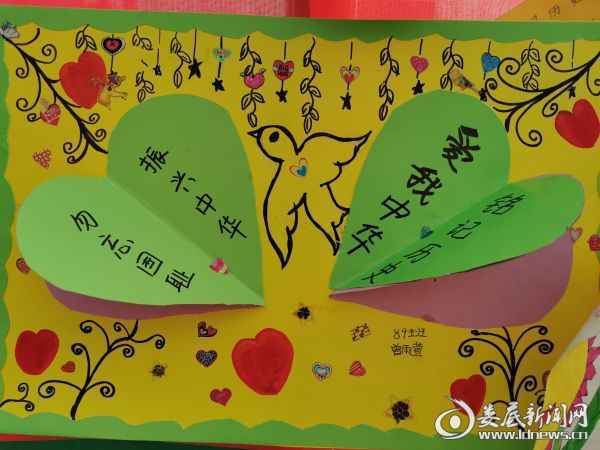 振兴中华
勿忘国耻
爱我中华
铭记历史
89班
曾雨萱
娄底新闻网
www.ldnews.cn